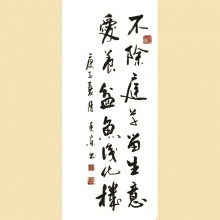 不除庭草留生意
愛養盆魚識化機
庚子夏月